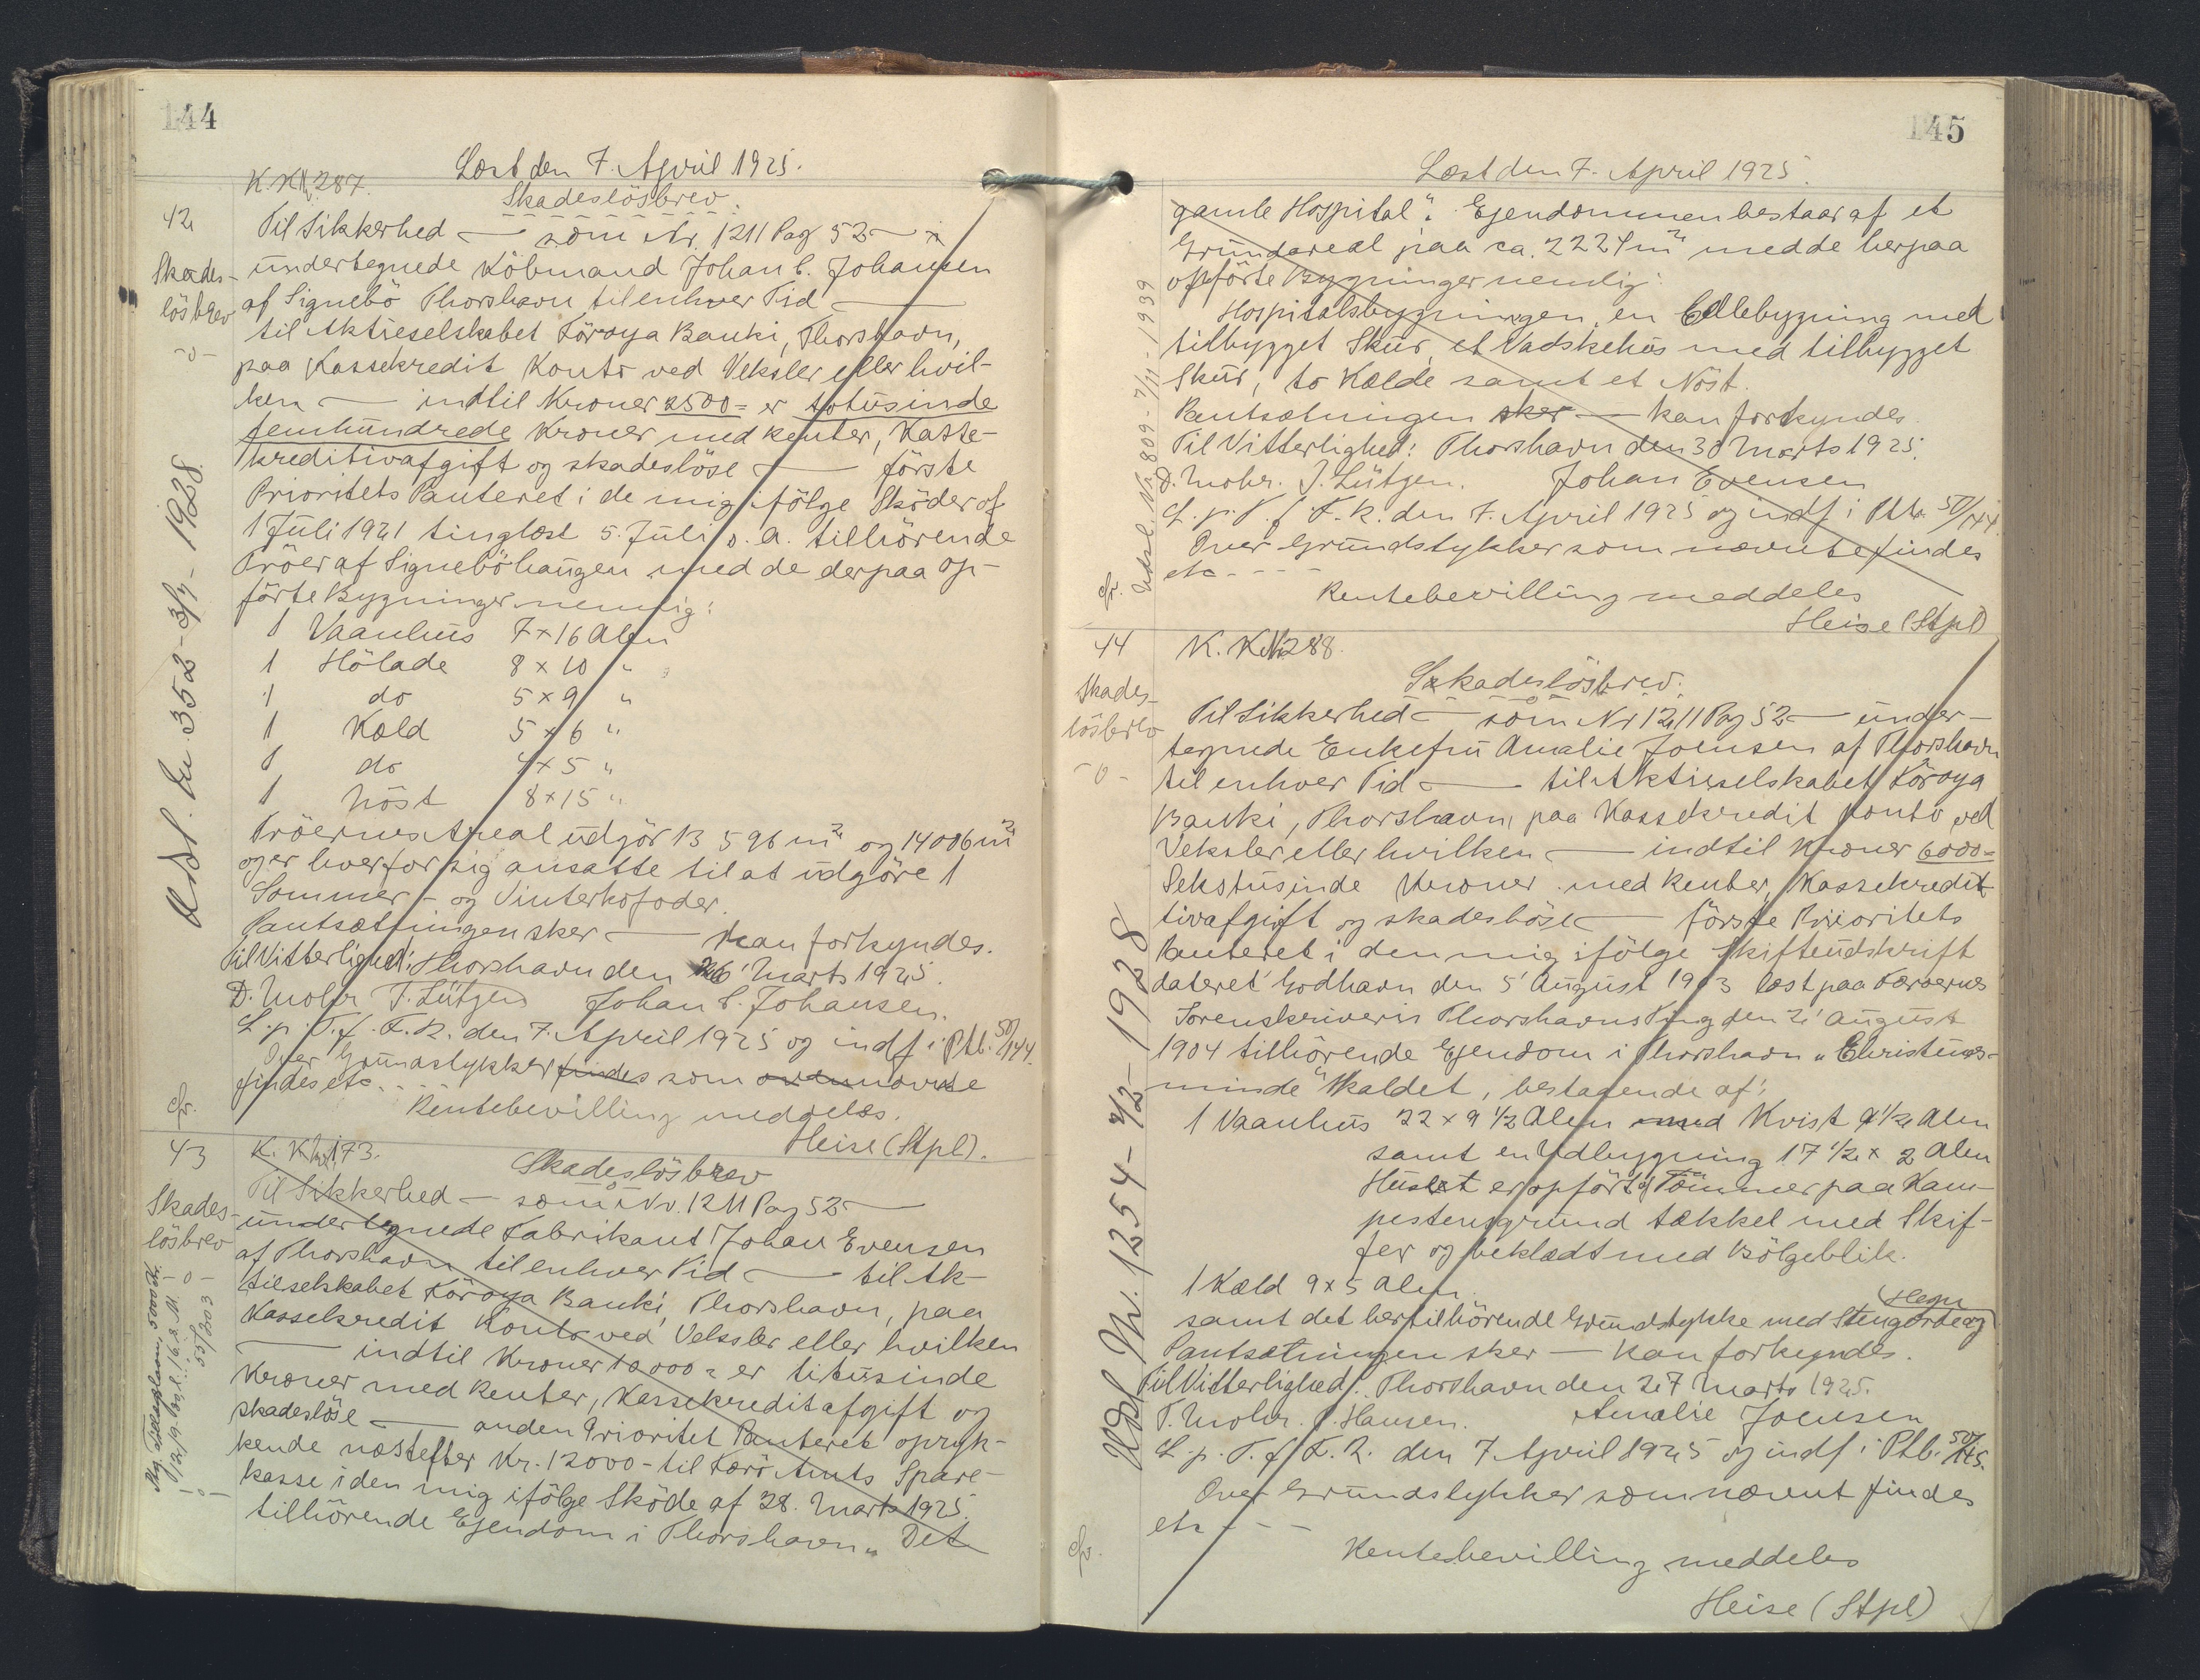 144
Læst den 7. April 1925.
K. K. No 287.
Skadeslösbrev.
42
Skades-
lösbrev
-o-
Til Sikkerhed — som Nr. 1211 Pag 52 —
undertegnede Köbmand Johan C. Johansen
af Signebö Thorshavn til enhver Tid —
til Aktieselskabet Föroya Banki, Thorshavn,
paa Kassekredit Konto ved Veksler eller hvil-
ken — indtil Kroner 2500 = er totusinde
femhundrede Kroner med Renter, Kasse-
kreditivafgift og skadeslöse — förste
Prioritets Panteret i de mig ifölge Sköder af
1 Juli 1921 tinglæst 5. Juli s. A. tilhörende
Tröer af Signeböhaugen med de derpaa op-
förte Bygninger nemlig:
1 Vaanhus 7 x 16 Alen
1 Hölade 8 x 10 "
1 do 5 x 9 "
1 Kæld 5 x 6 "
1 do 4 x 5 "
1 Nöst 8 x 15 "
Tröernes Areal udgör 13596 m² og 14006 m²
og er hver for sig ansatte til at udgöre 1
Sommer- og Vinterkofoder.
Pantsætningen sker — kan forkyndes.
Til Vitterlighed: Thorshavn den 26' Marts 1925.
D. Mohr T. Lützen Johan C. Johansen.
L. p. T. f. F. R. den 7. April 1925 og indf i Ptb. 50/144.
Over Grundstykker findes som ovennævnte
findes etc. ....
Rentebevilling meddeles.
Heise (Stpl).
Udsl. Nr 352 - 3/7 - 1928.
43
Skades-
lösbrev
-o-
K. K. No 173.
Skadeslösbrev
Til Sikkerhed — som Nr. 1211 Pag 52 —
undertegnede Fabrikant Johan Evensen
af Thorshavn til enhver Tid — til Ak-
tieselskabet Föroya Banki, Thorshavn, paa
Kassekredit Konto ved Veksler eller hvilken
— indtil Kroner 10000 = er titusinde
Kroner med Renter, Kassekreditafgift og
skadeslöse — anden Prioritet Panteret opryk-
kende næstefter Kr. 12000 - til Færö Amts Spare-
kasse i den mig ifölge Sköde af 28. Marts 1925
tilhörende Ejendom i Thorshavn „Det
145
Læst den 7. April 1925.
gamle Hospital". Ejendommen bestaar af et
Grundareal paa ca. 2224 m² med de herpaa
opförte Bygninger nemlig:
Hospitalsbygningen, en Cellebygning med
tilbygget Skur, et Vadskehus med tilbygget
Skur, to Kælde samt et Nöst.
Pantsætningen sker — kan forkyndes.
Til Vitterlighed: Thorshavn den 30 Marts 1925.
D. Mohr. J. Lützen. Johan Evensen
L. p. T. f. F. R. den 7. April 1925 og indf i Ptb. 50/144.
Over Grundstykker som nævnte findes
etc - - - -
Rentebevilling meddeles
Heise (Stpl)
Udsl. Nr 809 - 7/11 - 1939
44
Skades-
lösbrev
-o-
K. K. No 288.
Skadeslösbrev.
Til Sikkerhed — som Nr 1211 Pag 52 — under-
tegnede Enkefru Amalie Joensen af Thorshavn
til enhver Tid — til Aktieselskabet Föroya
Banki, Thorshavn, paa Kassekredit Konto ved
Veksler eller hvilken — indtil Kroner 6000 =
Sekstusinde Kroner med Renter, Kassekredit-
tivafgift og skadeslöse — förste Prioritets
Panteret i den mig ifölge Skifteudskrift
dateret Godhavn den 5' August 1903 læst paa Færöernes
Sorenskriveris Thorshavns Ting den 2' August
1904 tilhörende Ejendom i Thorshavn „Christines-
minde" kaldet, bestaaende af:
1 Vaanhus 22 x 9 1/2 Alen med Kvist 9 1/2 Alen
samt en Udbygning 17 1/2 x 2 Alen
Huset er opfört af Tömmer paa Kam-
pestensgrund tækket med Skif-
fer og beklædt med Bölgeblik.
1 Kæld 9 x 5 Alen.
samt det hertilhörende Grundstykke med Stengærde og Hegn
Pantsætningen sker — kan forkyndes.
Til Vitterlighed: Thorshavn den 27 Marts 1925.
T. Mohr. P. Hansen. Amalie Joensen
L. p. T. f. F. R. den 7 April 1925 og indf i Ptb. 50/145.
Over Grundstykker som nævnt findes
etc - - -
Rentebevilling meddeles
Heise (Stpl)
Udsl Nr. 1254 - 4/2 - 1928